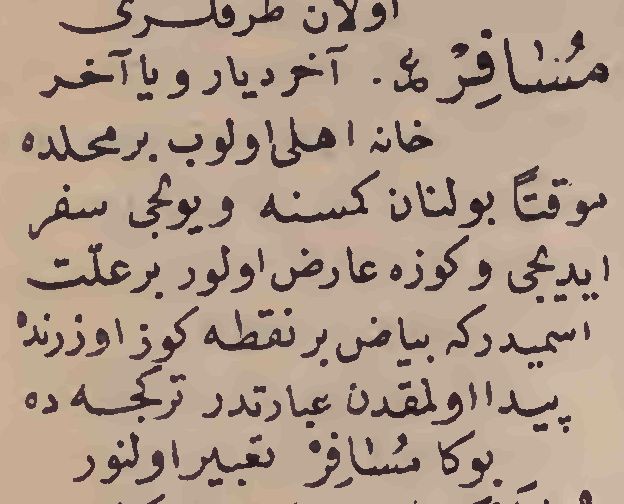 اولان طرفلری
مُسَافِرْ ع. آخر دیار و یا آخر
خانه اهلی اولوب بر محلده
موقتاً بولنان کمسنه و یولجی سفر
ایدیجی و کوزه عارض اولور بر علّت
اسمیدرکه بیاض بر نقطه کوز اوزرنده
پیدا اولمقدن عبارتدر ترکجه ده
بوکا مُسَافِرْ تعبیر اولنور